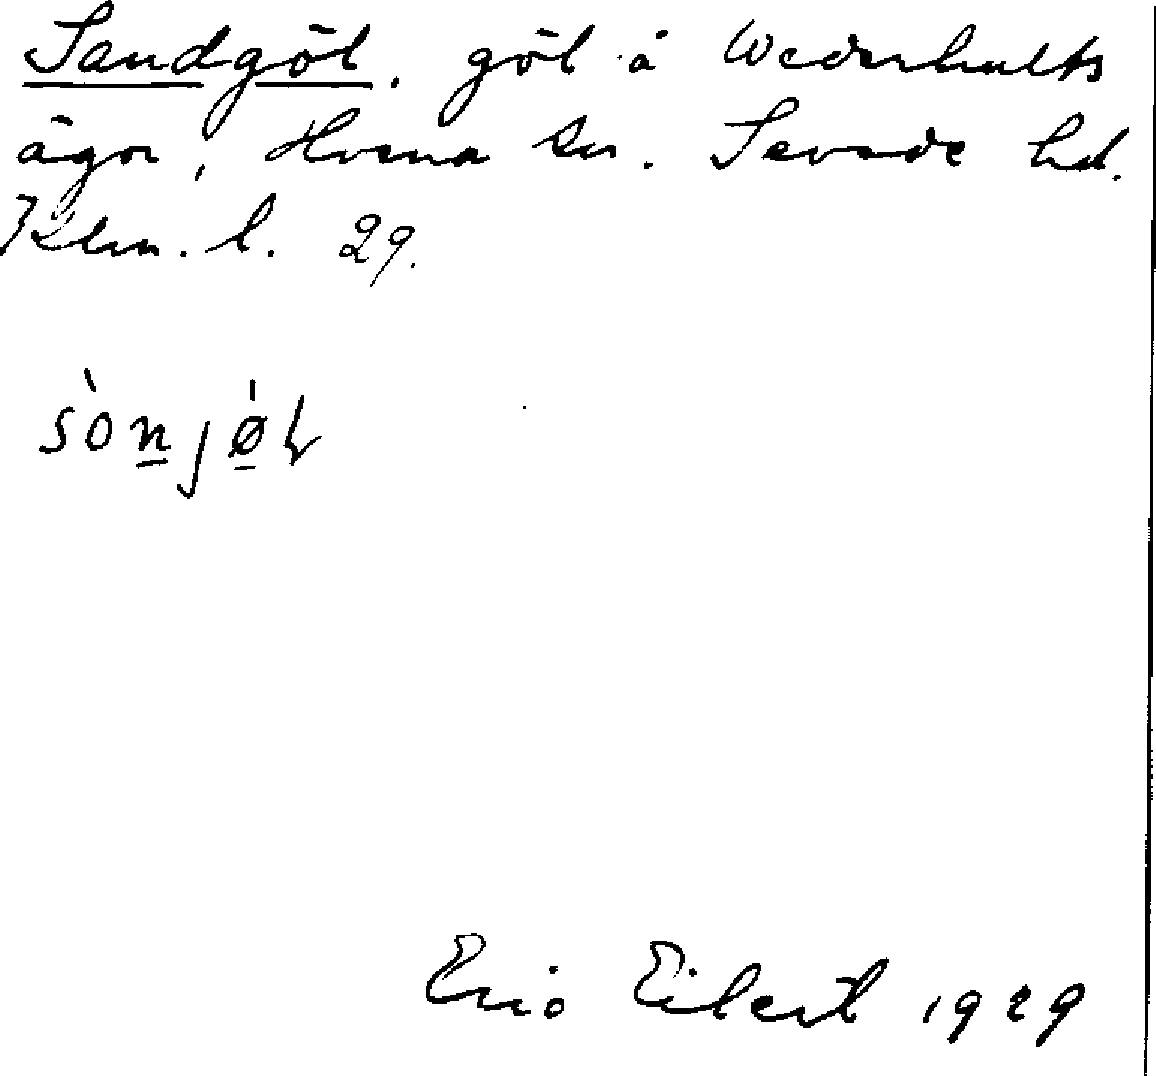 Sandgöl. göl å Wederhults
ägor, Hvena sn. Sevede hd.
Klm. l. 29.
sònjǿl
Eric Eilert 1929